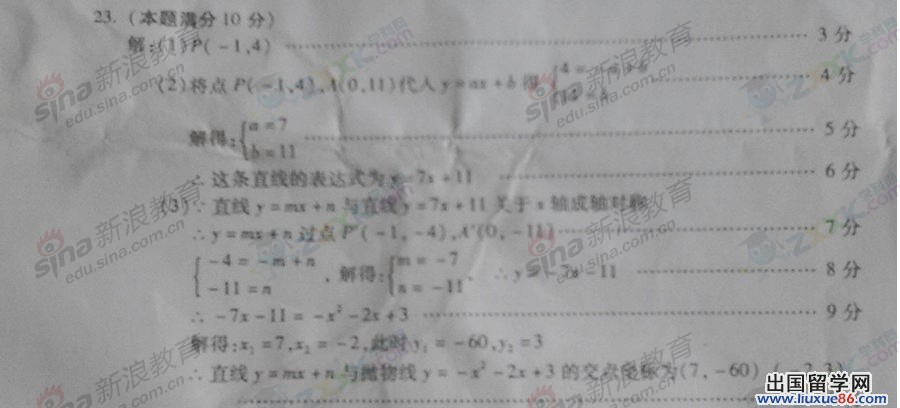 23.(本题满分10分)
解:(1)P(-1,4) 3分
(2)将点P(-1,4),A(0,11)代入y=ax+b得 { 4=-a+b 11=b 4分
解得:{ a=7 b=11 5分
∴这条直线的表达式为y=7x+11 6分
(3)∵直线y=mx+n与直线y=7x+11关于x轴成轴对称
∴y=mx+n过点P'(-1,-4),A'(0,-11) 7分
{ -4=-m+n -11=n ,解得:{ m=-7 n=-11 ∴y=-7x-11 8分
∴-7x-11=-x²-2x+3 9分
解得:x₁=7,x₂=-2,此时y₁=-60,y₂=3
∴直线y=mx+n与抛物线y=-x²-2x+3的交点坐标为(7,-60) (-2,3)
sina新浪教育
edu.sina.com.cn
出国留学网
www.liuxue86.com